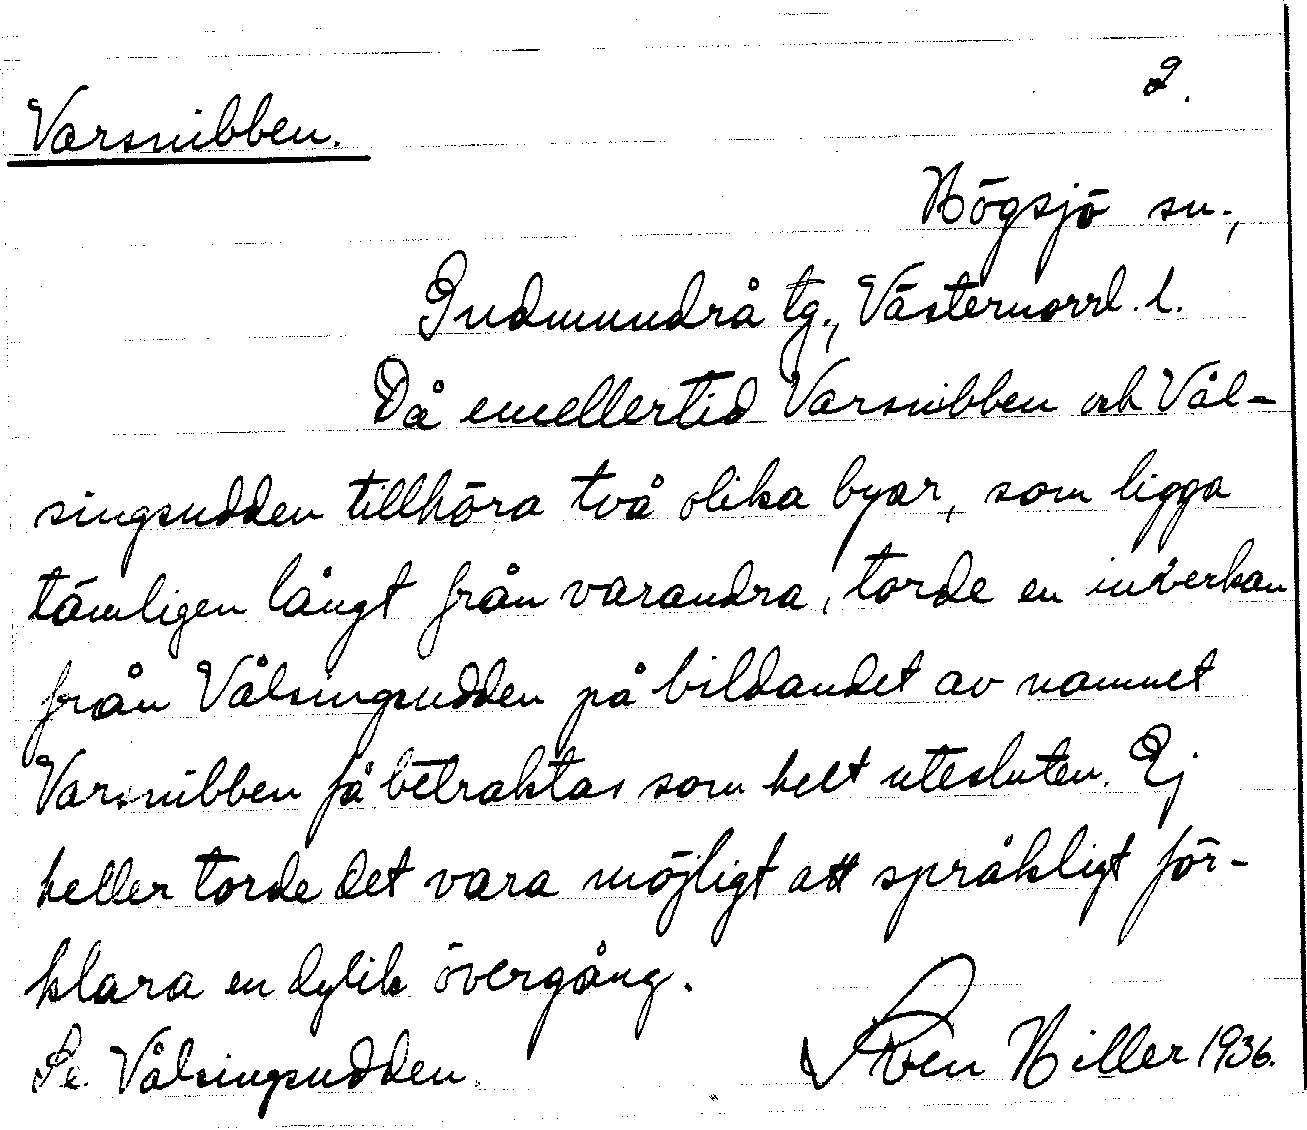 2.
Varsnibben.
Högsjö sn.,
Gudmundrå tg., Västernorrl. l.
Då emellertid Varsnibben och Vål-
singsudden tillhöra två olika byar, som ligga
tämligen långt från varandra, torde en inverkan
från Vålsingsudden på bildandet av namnet
Varsnibben få betraktas som helt utesluten. Ej
heller torde det vara möjligt att språkligt för-
klara en dylik övergång.
Se Vålsingsudden.
Sven Hiller 1936.